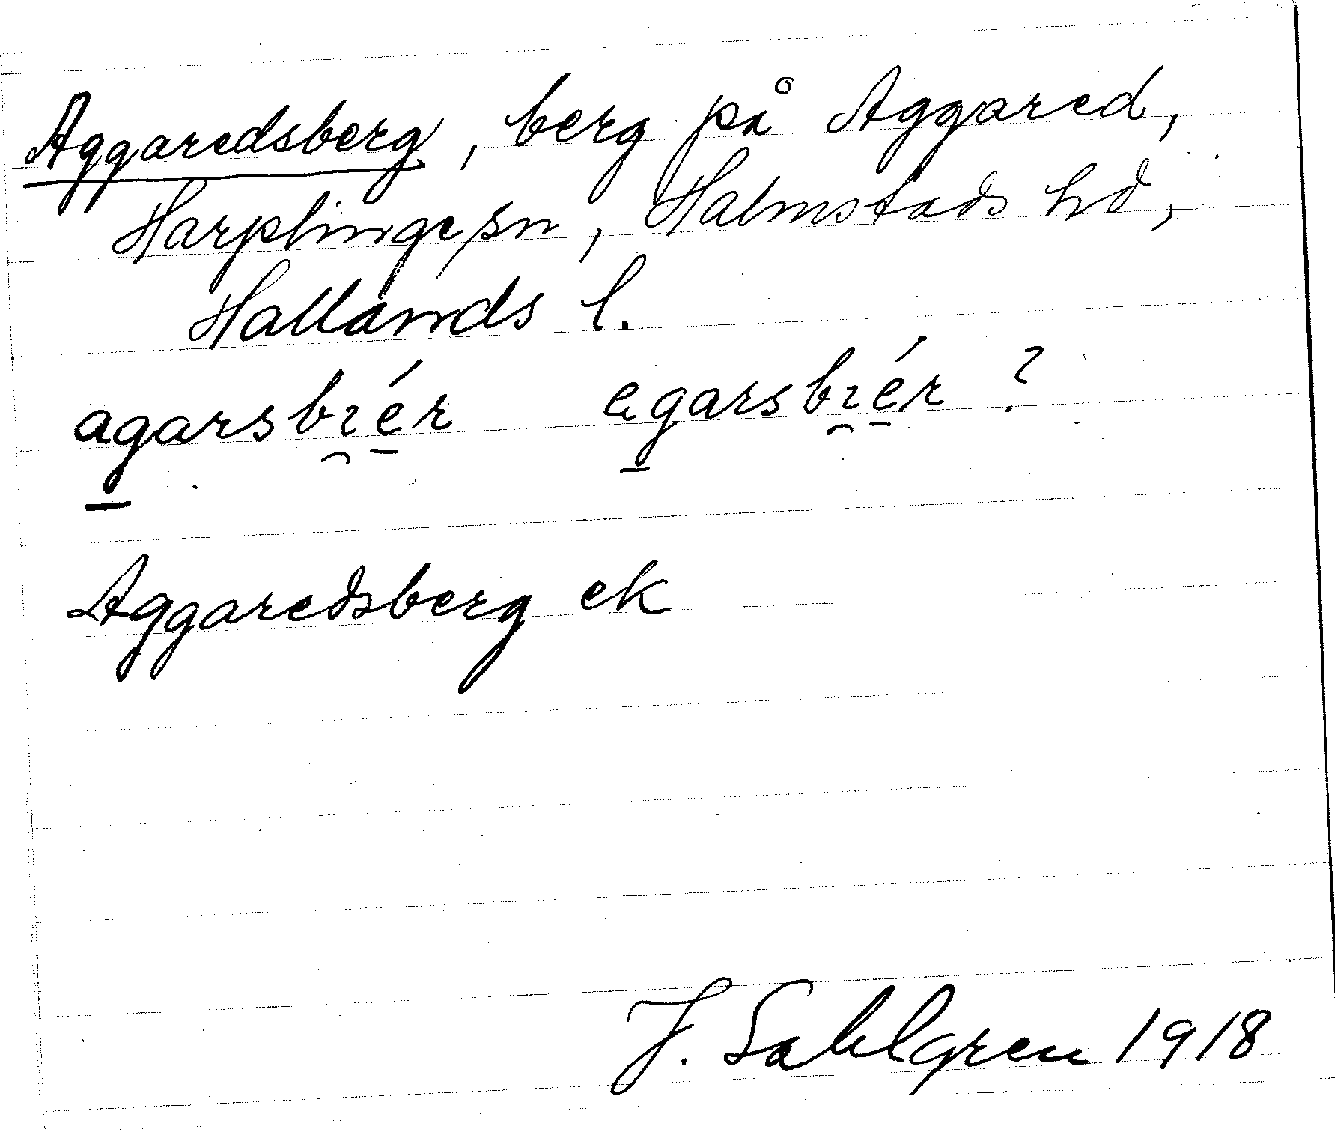 Aggaredsberg, berg på Aggared,
Harplinge sn, Halmstads hd,
Hallands l.
agarsbɪ̯ér agarsbɪ̯ér ?
Aggaredsberg ek
J. Sahlgren 1918